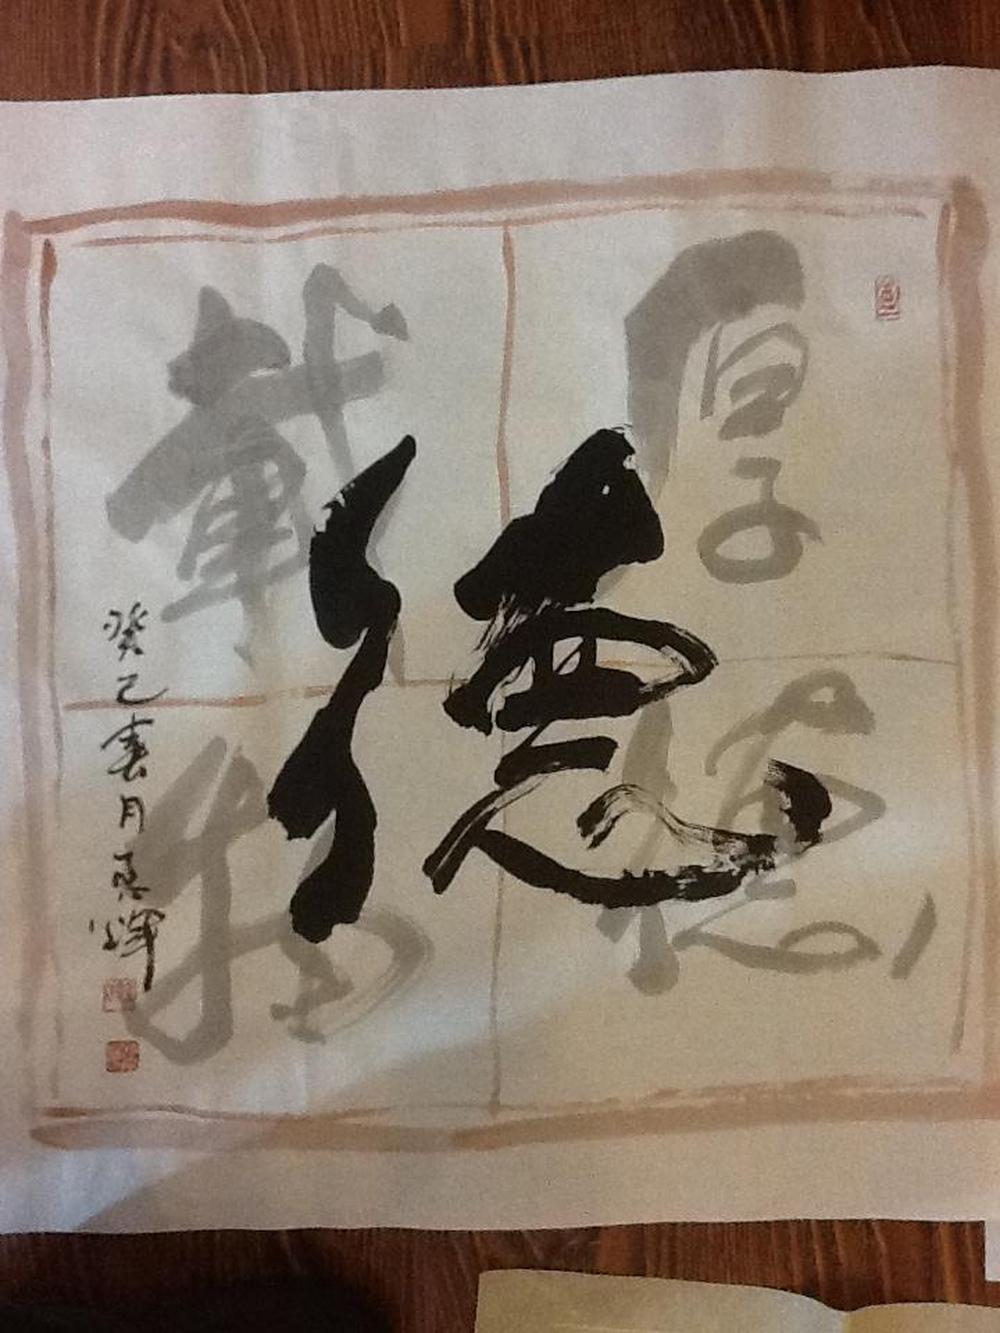 厚德
載物
德
癸巳春月